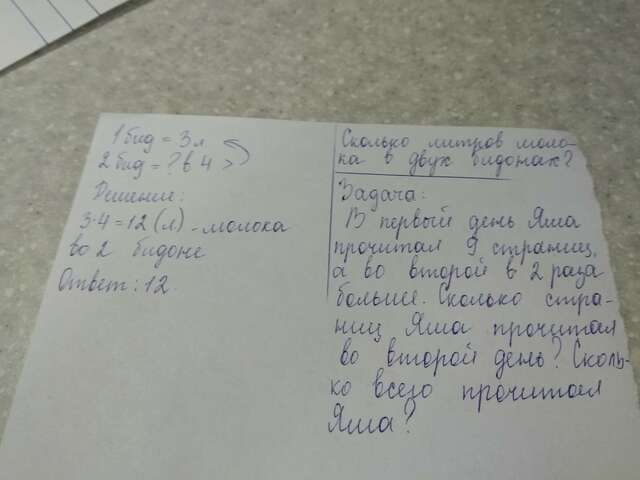 1 бид = 3 л
2 бид = ? в 4 >
Решение:
3·4=12 (л) - молока
во 2 бидоне
Ответ: 12.
Сколько литров моло-
ка в двух бидонах?
Задача:
В первый день Яша
прочитал 9 страниц,
а во второй в 2 раза
больше. Сколько стра-
ниц Яша прочитал
во второй день? Сколь-
ко всего прочитал
Яша?